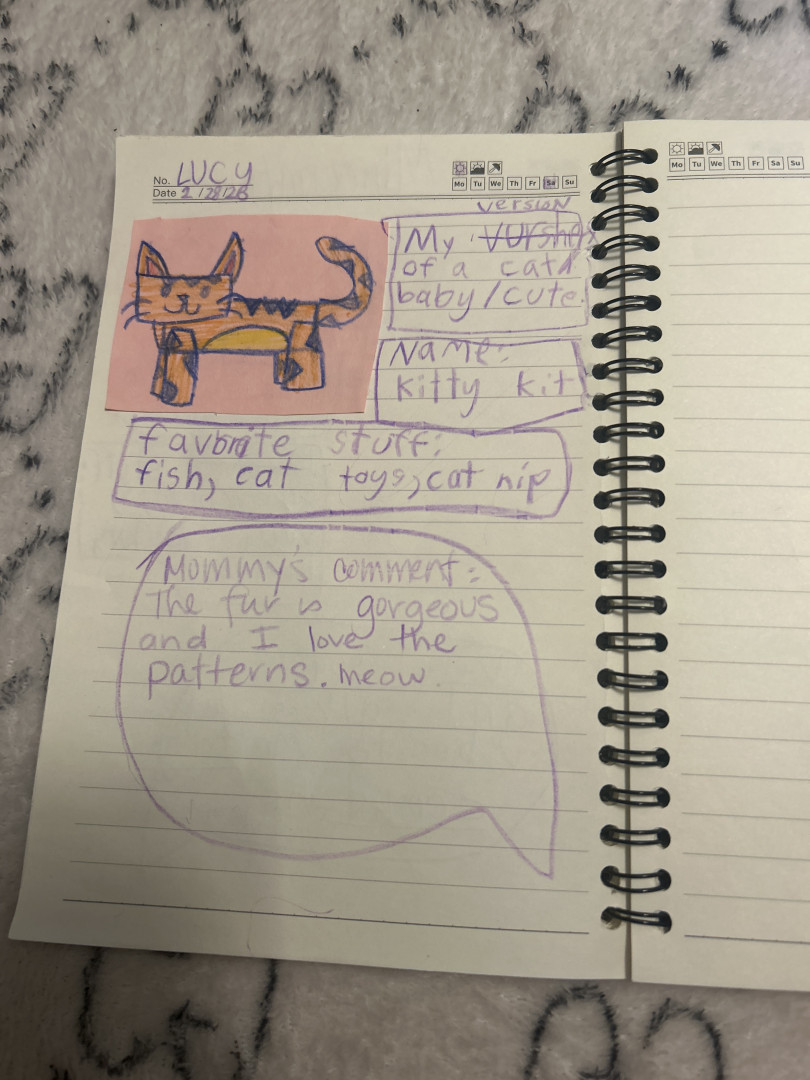 No. LUCY
Date 2/28/26
Mo Tu We Th Fr Sa Su
version
My
of a cat
baby/cute.
Name:
Kitty kit
favorite stuff:
fish, cat toys, cat nip
Mommy's comment:
The fur is gorgeous
and I love the
patterns. meow.
Mo Tu We Th Fr Sa Su